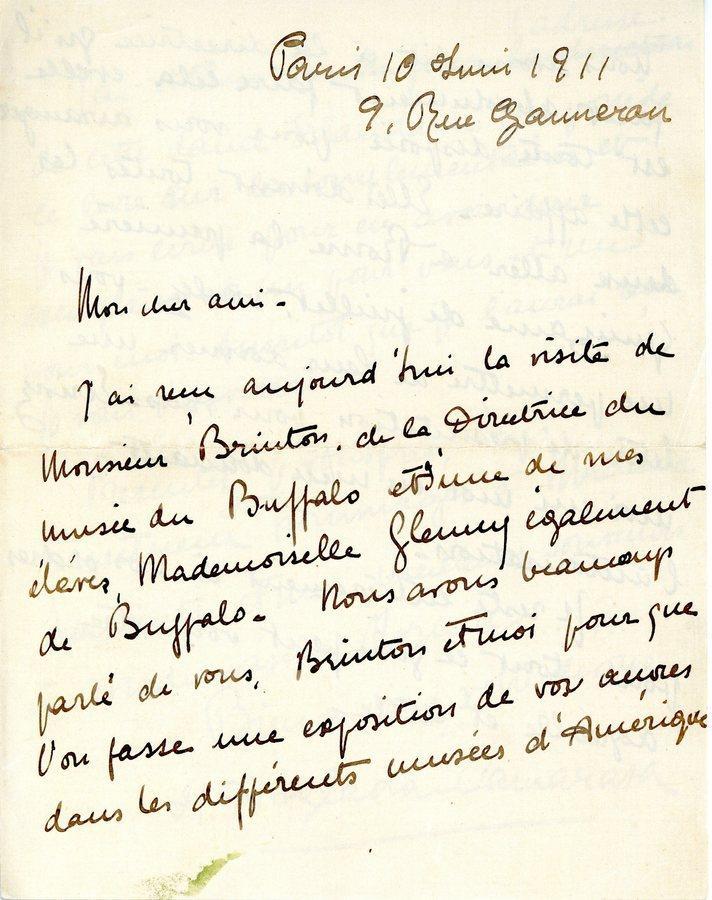 Paris 10 Juin 1911
9, Rue Ganneron
Mon cher ami -
J'ai reçu aujourd'hui la visite de
Monsieur Brinton, de la Directrice du
musée du Buffalo et d'une de mes
élèves, Mademoiselle Glenny également
de Buffalo - Nous avons beaucoup
parlé de vous, Brinton et moi pour que
l'on fasse une exposition de vos œuvres
dans les différents musées d'Amérique